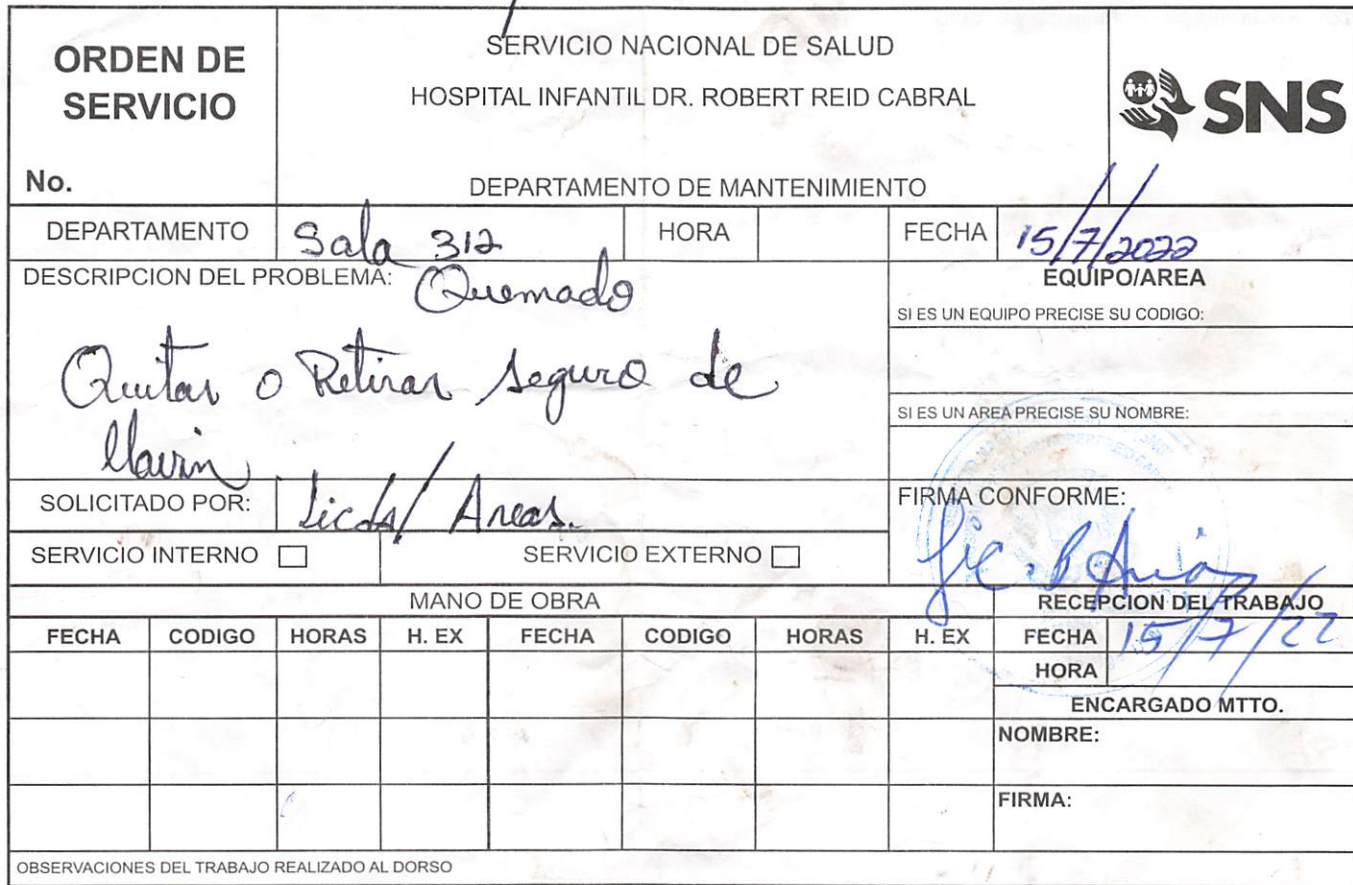 ORDEN DE
SERVICIO
No.
SERVICIO NACIONAL DE SALUD
HOSPITAL INFANTIL DR. ROBERT REID CABRAL
DEPARTAMENTO DE MANTENIMIENTO
SNS
DEPARTAMENTO Sala 312 HORA FECHA 15/7/2022
DESCRIPCION DEL PROBLEMA: Quemado
Quitar o Retirar seguro de
llavin
EQUIPO/AREA
SI ES UN EQUIPO PRECISE SU CODIGO:
SI ES UN AREA PRECISE SU NOMBRE:
SOLICITADO POR: Licda/
FIRMA CONFORME:
Lic.
SERVICIO INTERNO SERVICIO EXTERNO
MANO DE OBRA RECEPCION DEL TRABAJO
FECHA CODIGO HORAS H. EX FECHA CODIGO HORAS H. EX FECHA 15/7/22
HORA
ENCARGADO MTTO.
NOMBRE:
FIRMA:
OBSERVACIONES DEL TRABAJO REALIZADO AL DORSO